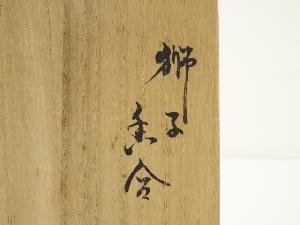 獅子
香合